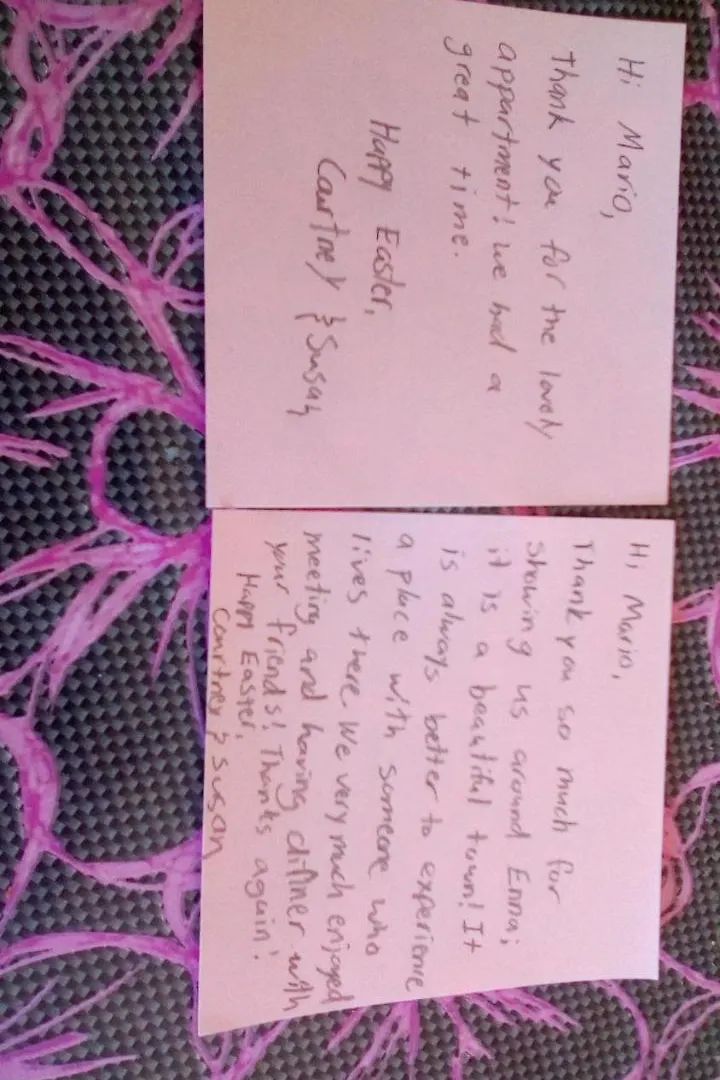 Hi Mario,
Thank you for the lovely
appartment! We had a
great time.
Happy Easter,
Courtney & Susan
Hi Mario,
Thank you so much for
showing us around Enna;
it is a beautiful town! It
is always better to experience
a place with someone who
lives there. We very much enjoyed
meeting and having dinner with
your friends! Thanks again!
Happy Easter,
Courtney & Susan